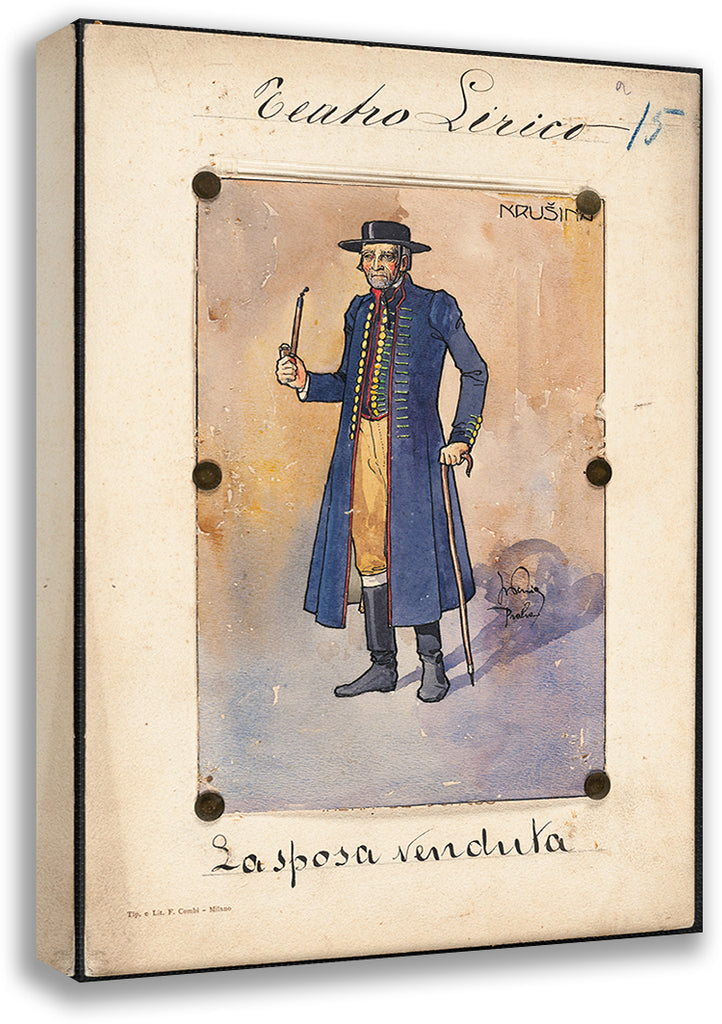 Teatro Lirico
15
KRUŠINA
Praha
La sposa venduta
Tip. e Lit. F. Combi - Milano